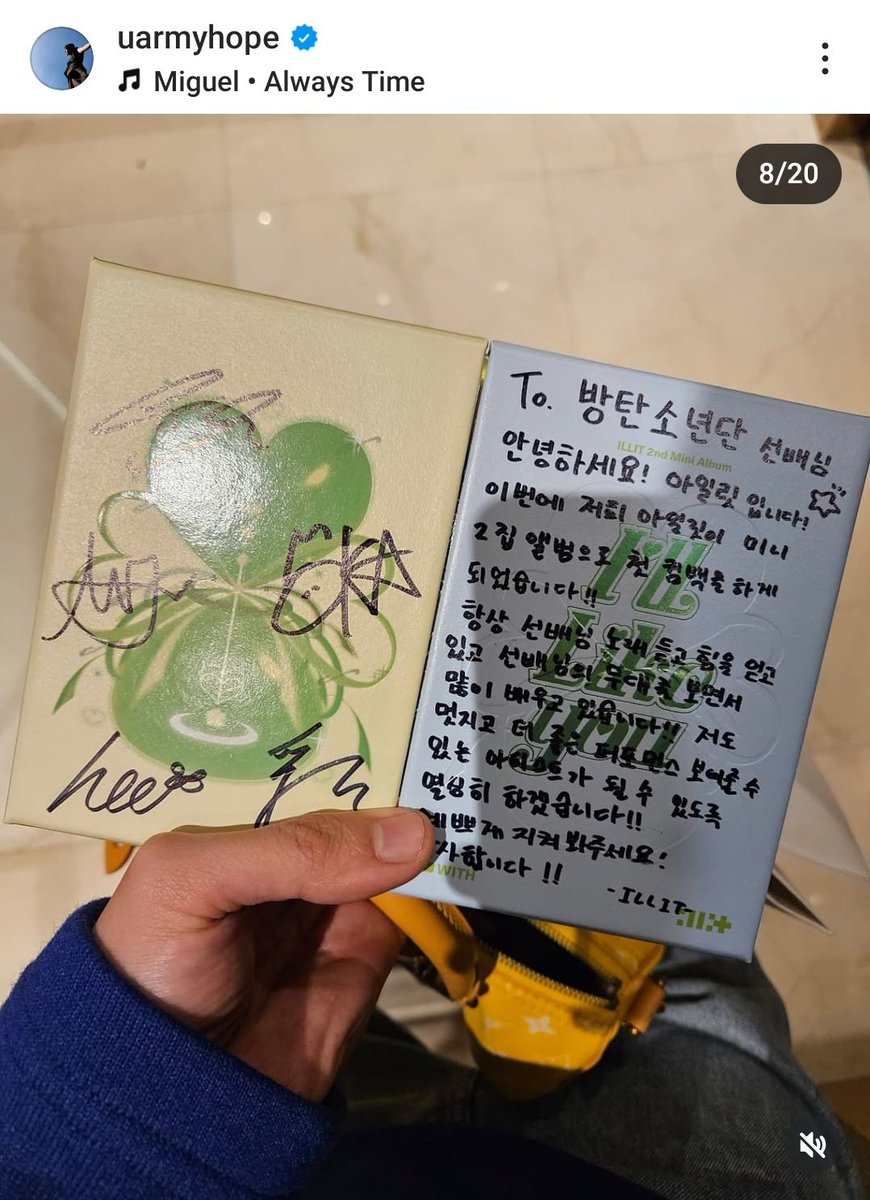 uarmyhope
Miguel • Always Time
8/20
To. 방탄소년단 선배님
ILLIT 2nd Mini Album
안녕하세요! 아일릿입니다!
이번에 저희 아일릿이 미니
2집 앨범으로 첫 컴백을 하게
되었습니다!!
항상 선배님 노래 듣고 힘을 얻고
있고 선배님의 무대를 보면서
많이 배우고 있습니다!! 저도
멋지고 더 좋은 퍼포먼스 보여줄 수
있는 아티스트가 될 수 있도록
열심히 하겠습니다!!
예쁘게 지켜봐주세요!
사합니다!!
-ILLIT-
I'll
Like
you
WITH
hee